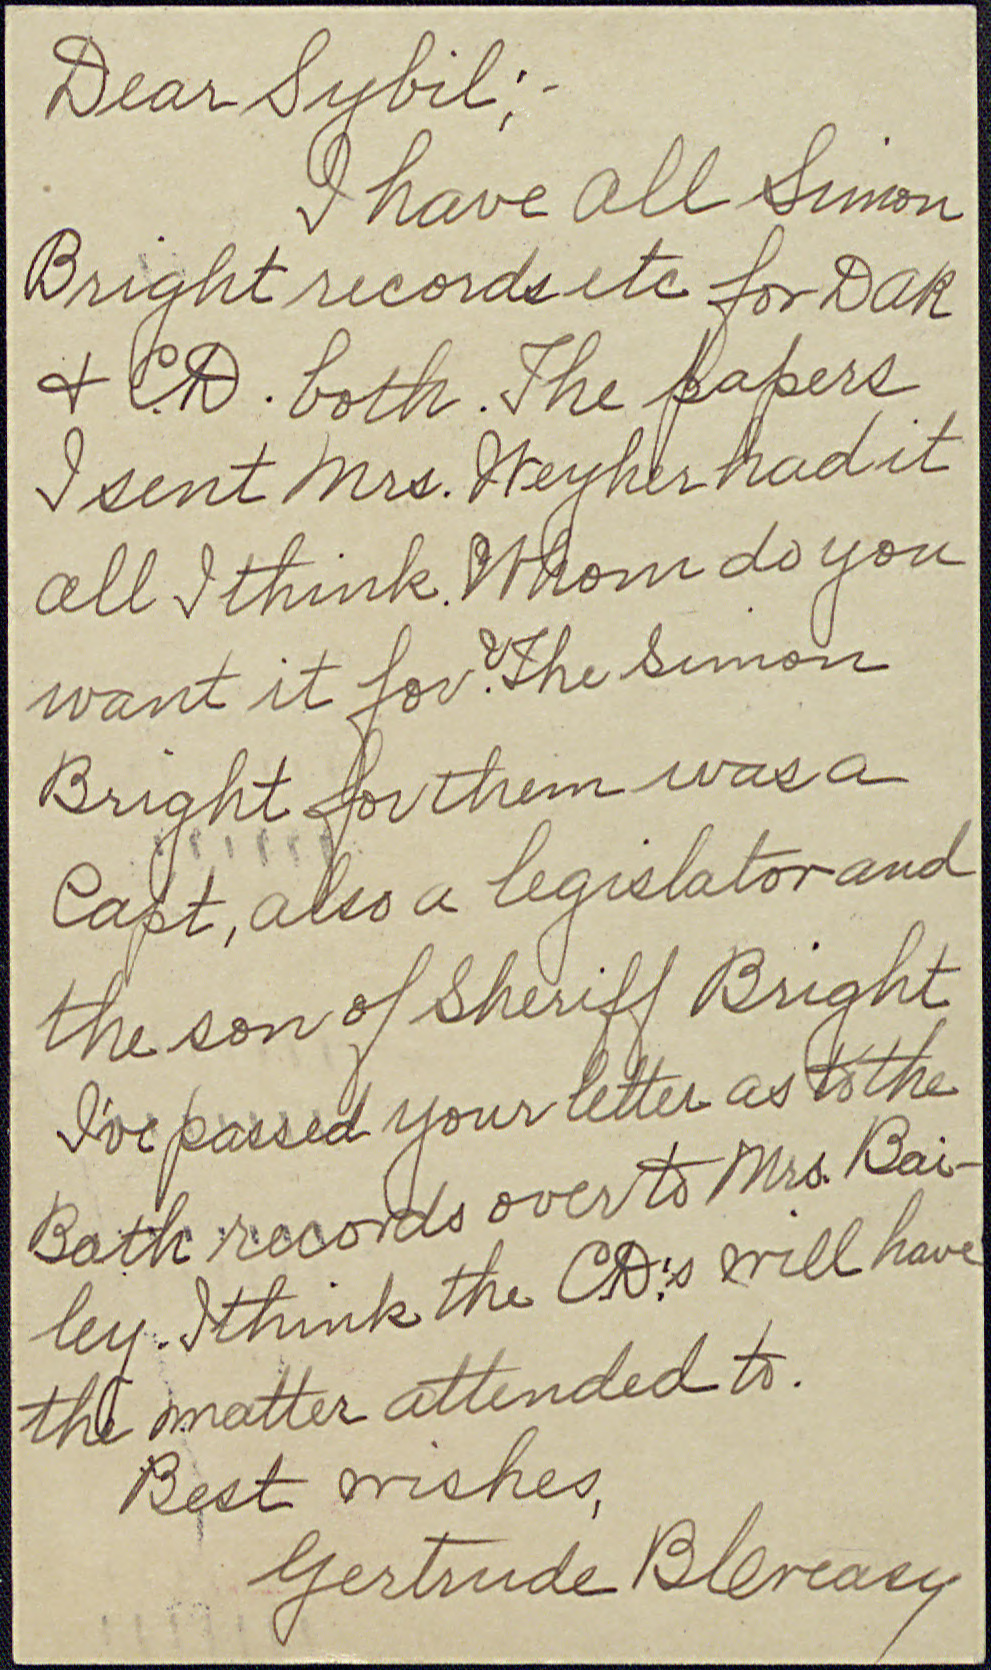 Dear Sybil;-
I have all Simon
Bright records etc for DAR
& C.D. both. The papers
I sent Mrs. Weyher had it
all I think. Whom do you
want it for? The Simon
Bright for them was a
Capt, also a legislator and
the son of Sheriff Bright
I've passed your letter as to the
Bath records over to Mrs. Bai-
ley. I think the C.D.'s will have
the matter attended to.
Best wishes,
Gertrude B Creasy